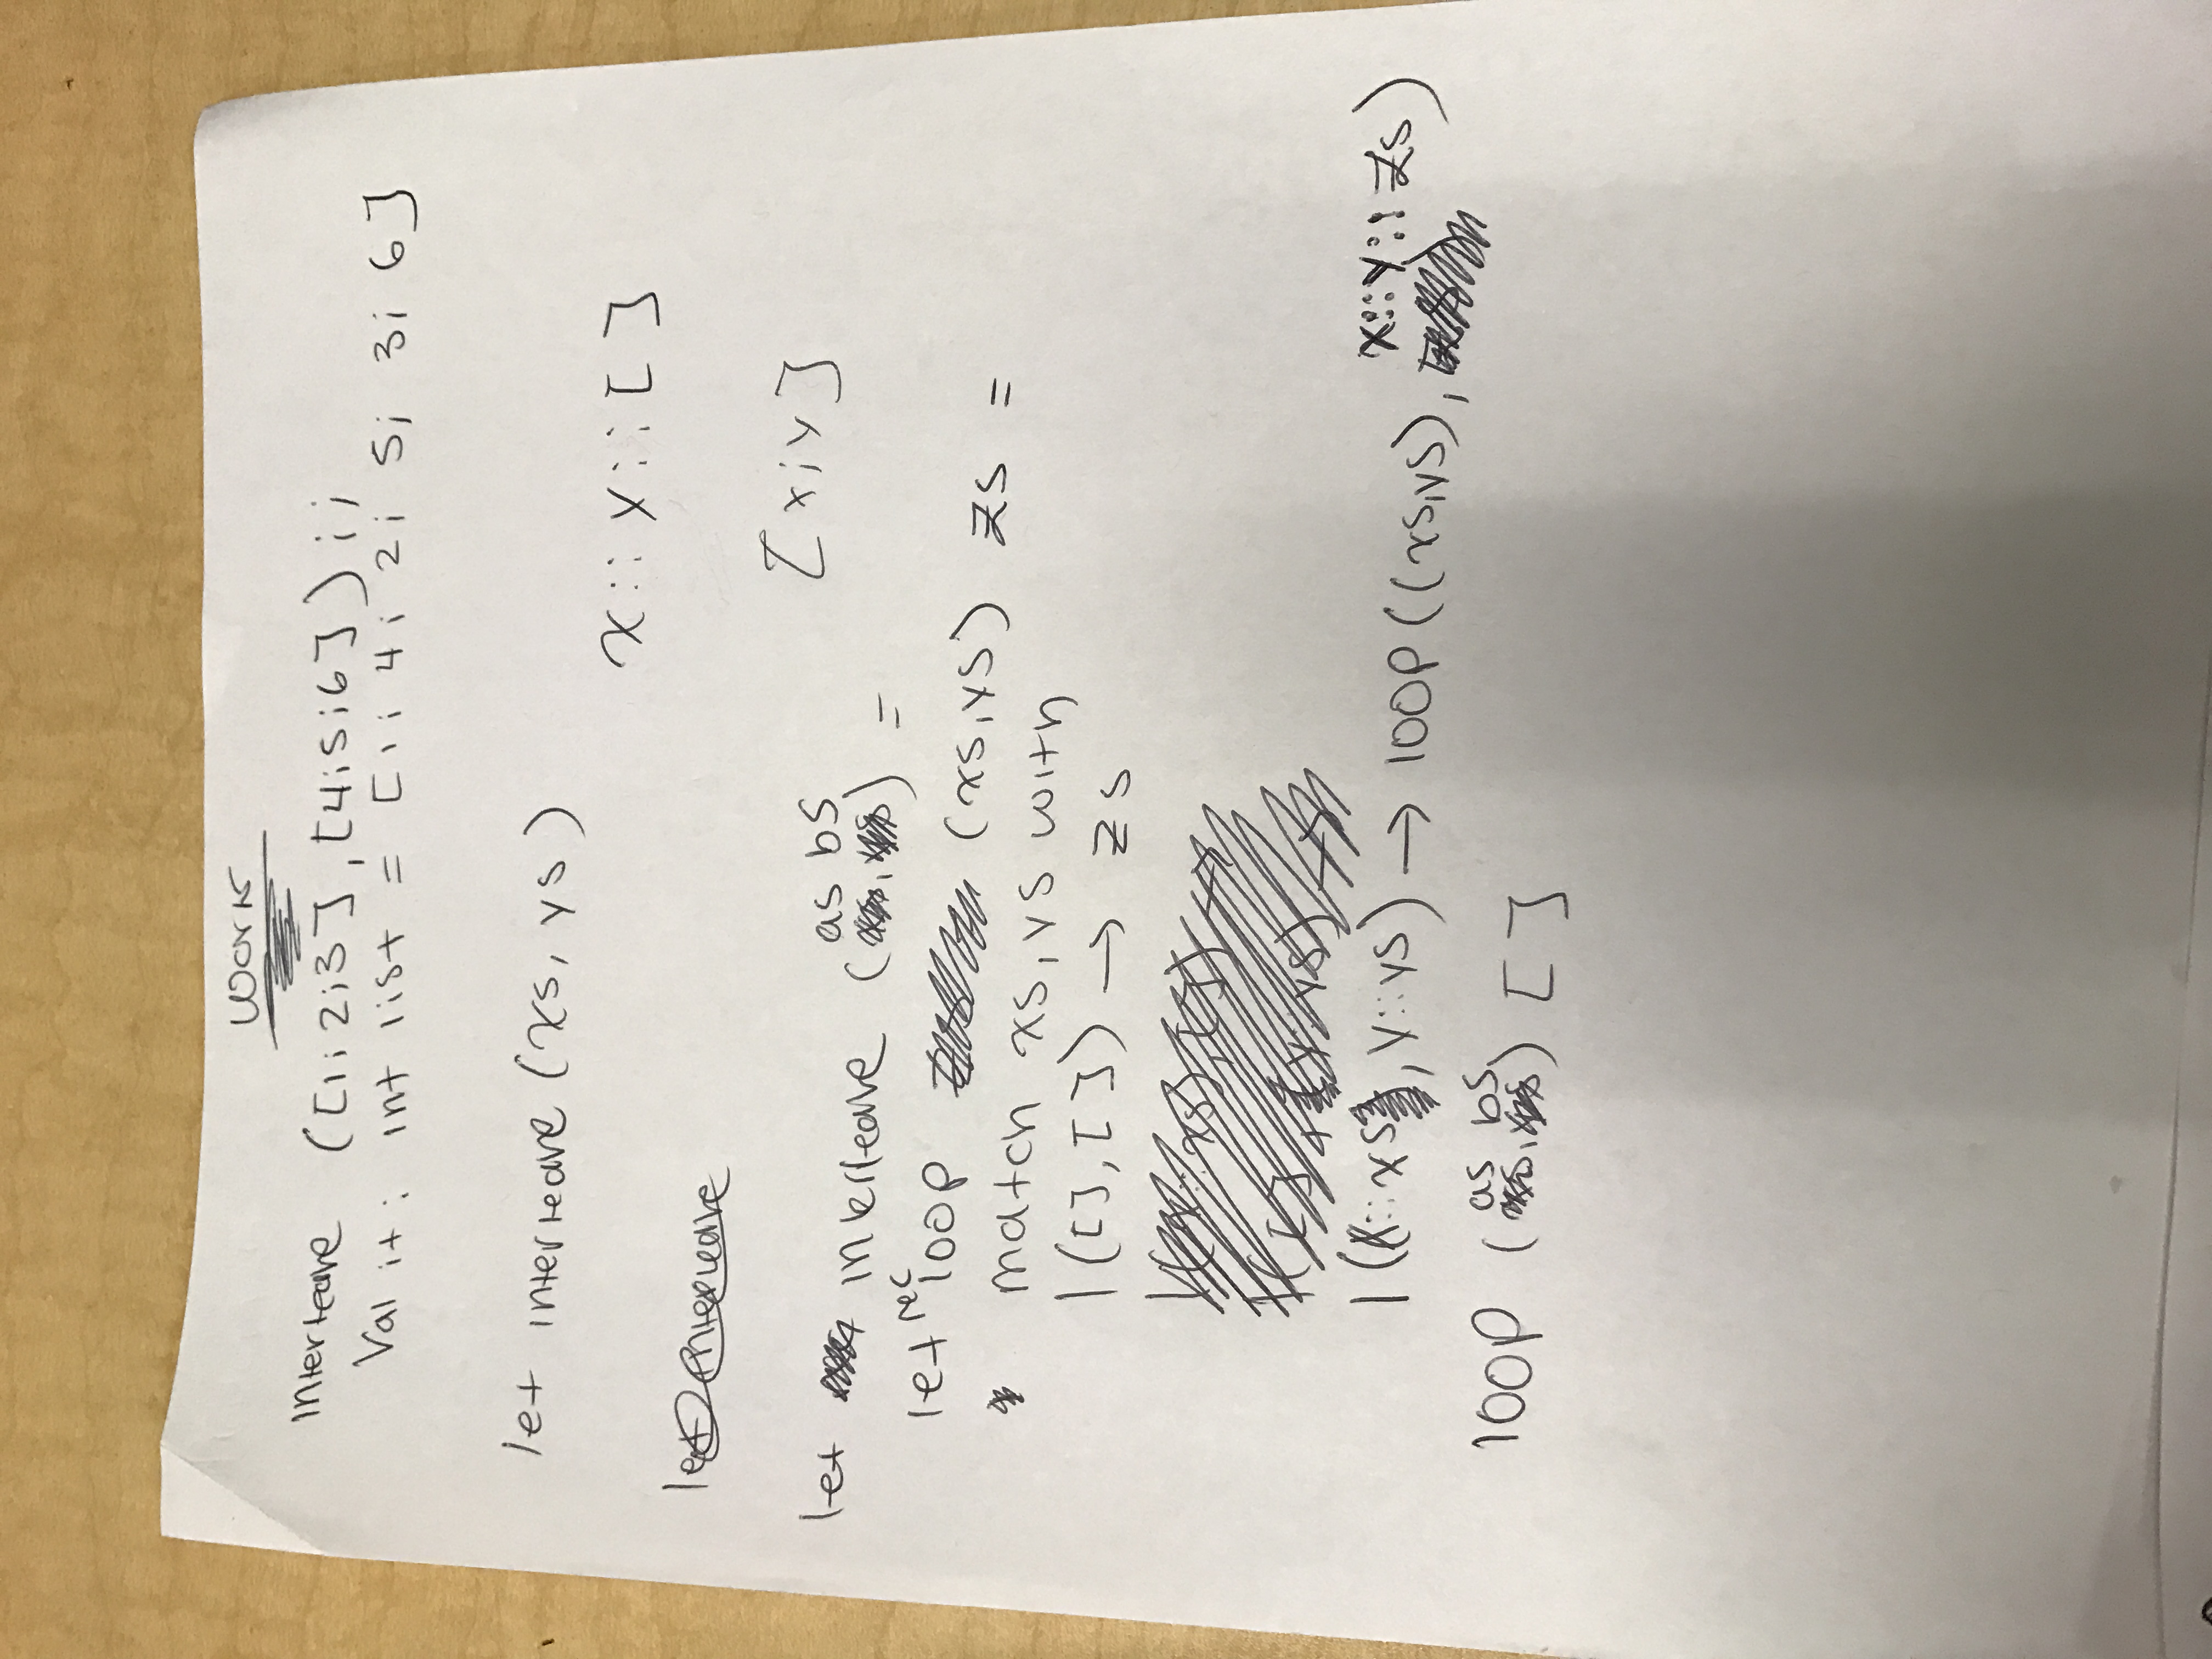 Work
interleave ([1;2;3],[4;5;6]);;
Val it: int list = [1; 4; 2; 5; 3; 6]
let interleave (xs, ys)
x::y::[]
let interleave
[x;y]
as bs
let interleave ( , ) =
let rec loop (xs,ys) zs =
match xs,ys with
|([],[]) → zs
|(x::xs, y::ys) → loop((xs,ys), x::y::zs)
as bs
loop ( , ) []